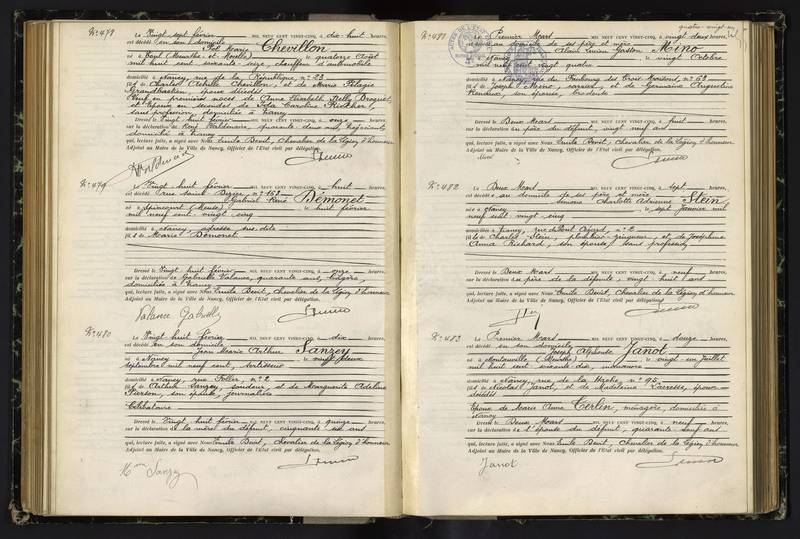 N° 478
Le Vingt sept février MIL NEUF CENT VINGT-CINQ, à dix-huit heures,
est décédé en son domicile
Chevillon
né à Toul (Meurthe et Moselle) le quatorze Août
mil huit cent soixante seize, chauffeur d'automobile
domicilié à Nancy, rue de la République, n° 23
fil s de Charles Achille Chevillon, et de Marie Pélagie
époux décédés
Veuf en premières noces de Anne Elisabeth Nelly
et époux en secondes de Caroline Fischer,
sans profession, domiciliée à Nancy
Dressé le Vingt huit février onze heures,
sur la déclaration de René quarante deux ans,
domicilié à Nancy
qui, lecture faite, a signé avec Nous Emile Chevalier de la Légion d'honneur
Adjoint au Maire de la Ville de Nancy, Officier de l'Etat civil par délégation.
N° 479
Le Vingt huit février MIL NEUF CENT VINGT-CINQ, à huit heures,
est décédé rue Saint-Dizier, n° 153
Gabriel René Demonet
né à Spincourt (Meuse) le huit février
mil neuf cent vingt cinq
domicilié à Nancy, adresse sus-dite
fil s de Marie Demonet
Dressé le Vingt huit février MIL NEUF CENT VINGT-CINQ, à onze heures,
sur la déclaration de Gabrielle Valance, quarante ans, lingère
domiciliée à Nancy
qui, lecture faite, a signé avec Nous Emile Chevalier de la Légion d'honneur
Adjoint au Maire de la Ville de Nancy, Officier de l'Etat civil par délégation.
Valance Gabrielle
N° 480
Le Vingt huit février MIL NEUF CENT VINGT-CINQ, à dix heures,
est décédé en son domicile
Jean Marie Arthur Sanzey
né à Nancy le vingt deux
septembre mil neuf cent,
domicilié à Nancy, rue n° 2
fil s de Arthur Sanzey, et de Marguerite Adeline
Pierson, son épouse, journalière
Célibataire
Dressé le Vingt huit février MIL NEUF CENT VINGT-CINQ, à quinze heures,
sur la déclaration de la mère du défunt, cinquante six ans
qui, lecture faite, a signé avec Nous Emile Chevalier de la Légion d'honneur
Adjoint au Maire de la Ville de Nancy, Officier de l'Etat civil par délégation.
Mme Sanzey
quatre vingt un
N° 481
Le Premier Mars MIL NEUF CENT VINGT-CINQ, à vingt deux heures,
est décédé au domicile de ses père et mère
Mino
né à Nancy le vingt Octobre
mil neuf cent vingt quatre
domicilié à Nancy, rue du Faubourg des Trois Maisons n° 63
fil s de Joseph Mino, et de Germaine Augustine
son épouse, brodeuse
Dressé le Deux Mars MIL NEUF CENT VINGT-CINQ, à huit heures,
sur la déclaration du père du défunt, vingt neuf ans
qui, lecture faite, a signé avec Nous Emile Chevalier de la Légion d'honneur
Adjoint au Maire de la Ville de Nancy, Officier de l'Etat civil par délégation.
Mino
N° 482
Le Deux Mars MIL NEUF CENT VINGT-CINQ, à sept heures,
est décédée au domicile de ses père et mère
Simone Charlotte Adrienne Stein
née à Nancy le sept janvier mil
neuf cent vingt cinq
domiciliée à Nancy, rue n° 2
fil le de Charles Stein, plombier-zingueur, et de Joséphine
Anna Richard, son épouse, sans profession
Dressé le Deux Mars MIL NEUF CENT VINGT-CINQ, à neuf heures,
sur la déclaration du père de la défunte, vingt huit ans
qui, lecture faite, a signé avec Nous Emile Chevalier de la Légion d'honneur
Adjoint au Maire de la Ville de Nancy, Officier de l'Etat civil par délégation.
N° 483
Le Premier Mars MIL NEUF CENT VINGT-CINQ, à douze heures,
est décédé en son domicile
Joseph Alphonse Janot
né à Montauville (Meurthe) le vingt un Juillet
mil huit cent soixante dix,
domicilié à Nancy, rue de la Hache, n° 95
fil s de Nicolas Janot, et de Madeleine époux
décédés
Epoux de Marie Anna Terlin, ménagère, domiciliée à
Nancy
Dressé le Deux Mars MIL NEUF CENT VINGT-CINQ, à neuf heures,
sur la déclaration de l'épouse du défunt, quarante neuf ans
qui, lecture faite, a signé avec Nous Emile Chevalier de la Légion d'honneur
Adjoint au Maire de la Ville de Nancy, Officier de l'Etat civil par délégation.
Janot